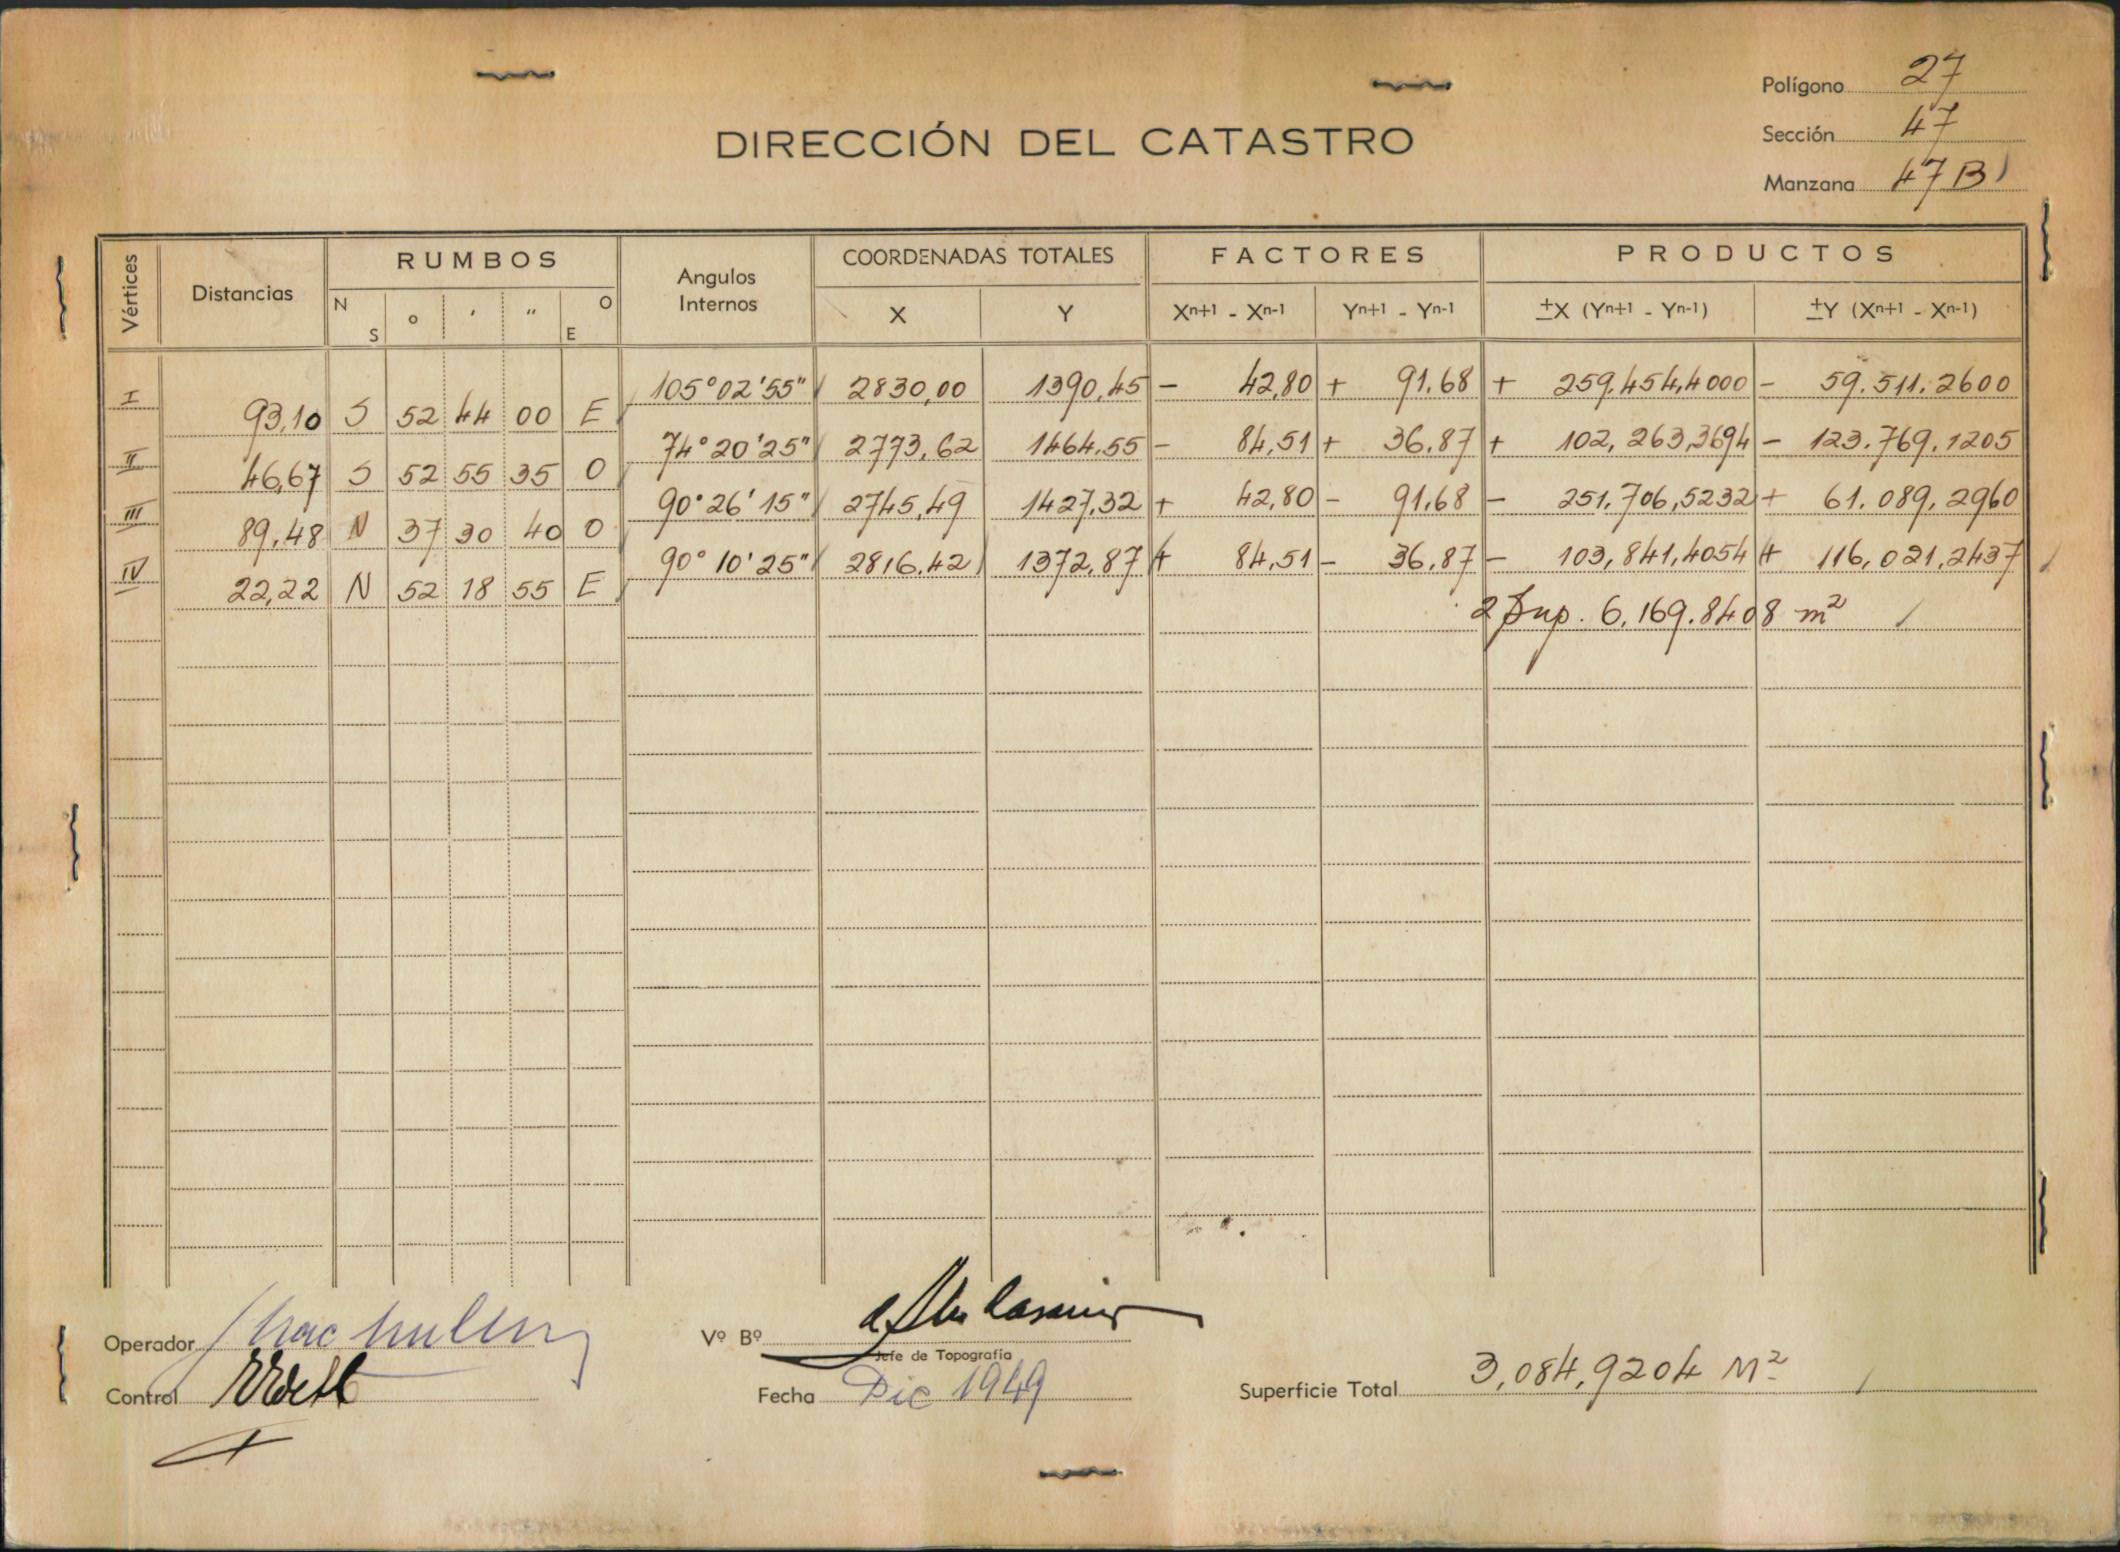 Polígono 27
Sección 47
Manzana 47 B
DIRECCIÓN DEL CATASTRO
Vértices Distancias RUMBOS Angulos Internos COORDENADAS TOTALES FACTORES PRODUCTOS
N S o ' " O E X Y Xn+1 - Xn-1 Yn+1 - Yn-1 ±X (Yn+1 - Yn-1) ±Y (Xn+1 - Xn-1)
I 105°02'55" 2830,00 1390,45 - 42,80 + 91.68 + 259.454,4000 - 59.511.2600
93,10 S 52 44 00 E
II 74°20'25" 2773,62 1464.55 - 84,51 + 36.87 + 102,263,3694 - 123.769.1205
46,67 S 52 55 35 O
III 90°26'15" 2745,49 1427,32 + 42,80 - 91.68 - 251,706,5232 + 61.089,2960
89,48 N 37 30 40 O
IV 90°10'25" 2816.42 1372,87 + 84,51 - 36,87 - 103,841,4054 + 116,021,2437
22,22 N 52 18 55 E
2 Sup. 6,169.8408 m²
Operador
Vº Bº
Jefe de Topografía
Control
Fecha Dic 1949
Superficie Total 3,084,9204 M²